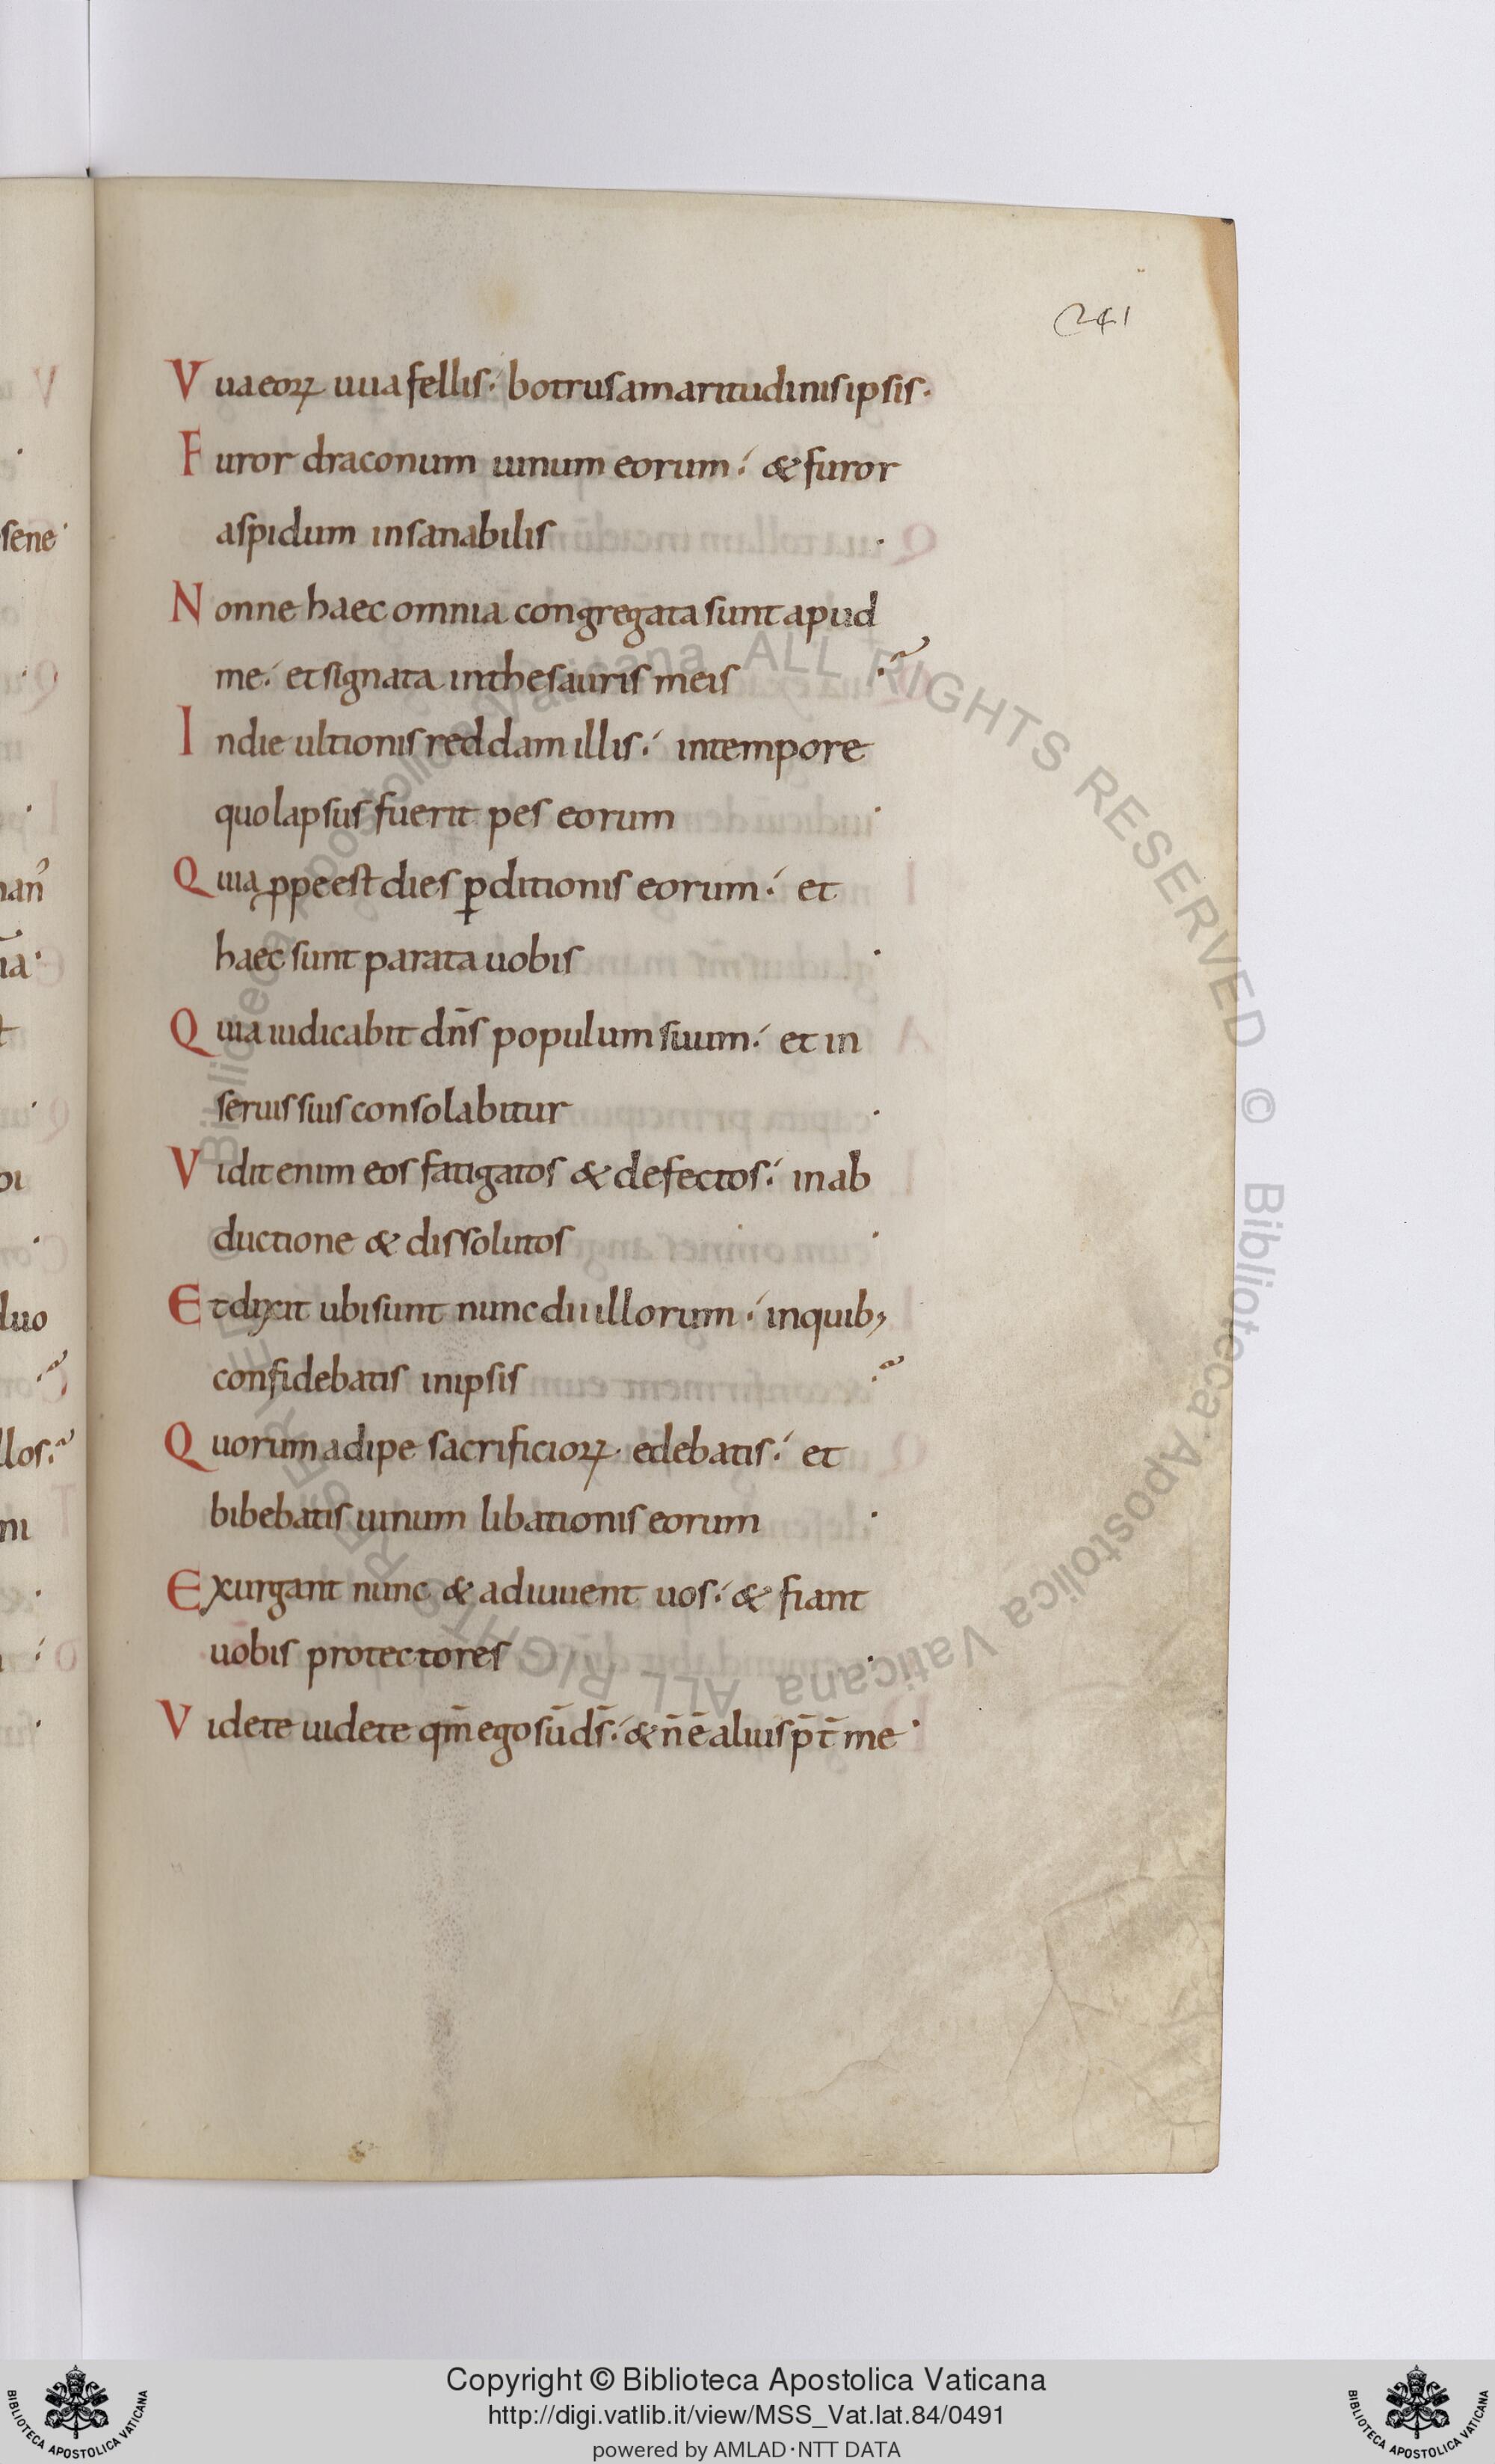 241
V uaeoꝝ uuafellis· botrusamaritudinisipsis·
F uror draconum uinum eorum· &furor
aspidum insanabilis ·
N onne haec omnia congregata sunt apud
me· etsignata inthesauris meis ·
I ndie ultionis reddam illis· intempore
quo lapsus fuerit pes eorum ·
Q uia ꝓpeest dies ꝑditionis eorum· et
haec sunt parata uobis ·
Q uia iudicabit dn̄s populum suum· et in
seruis suis consolabitur ·
V idit enim eos fatigatos & defectos· inab
ductione & dissolutos ·
E tdixit ubi sunt nunc dii illorum· inquib;
confidebatis inipsis ·
Q uorum adipe sacrificioꝝ edebatis· et
bibebatis uinum libationis eorum ·
E xurgant nunc & adiuuent uos· & fiant
uobis protectores ·
V idete uidete qm̄ ego sū ds̄· & n̄ ē alius p̄t̄ me·
Biblioteca Apostolica Vaticana ALL RIGHTS RESERVED ©
Biblioteca Apostolica Vaticana ALL RIGHTS RESERVED ©
Copyright © Biblioteca Apostolica Vaticana
http://digi.vatlib.it/view/MSS_Vat.lat.84/0491
powered by AMLAD·NTT DATA
BIBLIOTECA APOSTOLICA VATICANA
BIBLIOTECA APOSTOLICA VATICANA